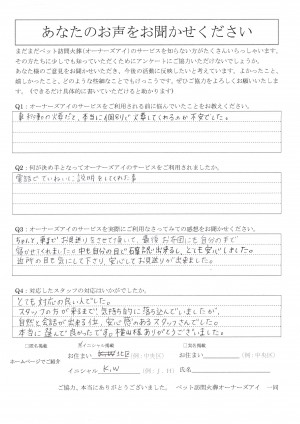 あなたのお声をお聞かせください
まだまだペット訪問火葬(オーナーズアイ)のサービスを知らない方がたくさんいらっしゃいます。
その方たちに少しでも知っていただくためにアンケートにご協力いただけないでしょうか。
あなた様のご意見をお聞かせいただき、今後の活動に反映したいと考えています。よかったこと、
嬉しかったこと、どのような些細なことでもけっこうです。ぜひご協力をよろしくお願いいたしま
す。(できるだけ具体的に書いていただけると助かります)
Q1:オーナーズアイのサービスをご利用される前に悩んでいたことをお教えください。
車移動の火葬だと、本当に個別で火葬してくれるのか不安でした。
Q2:何が決め手となってオーナーズアイのサービスをご利用されましたか。
電話でていねいに説明をしてくれた事
Q3:オーナーズアイのサービスを実際にご利用なさってみての感想をお聞かせください。
ちゃんと、車までお見送りをさせて頂いて、最後お骨にも自分の手で
自分の目で確認出来るし、とても安心しました。
近所の目も気にして下さり、安心してお見送りが出来ました。
Q4:対応したスタッフの対応はいかがでしたか。
とても対応の良い人でした。
スタッフの方が来るまで気持ち的に落ち込んでいましたが、
自然と会話が出来る位、安心感のあるスタッフさんでした。
本当に選んで良かったです。横山様ありがとうございました。
□匿名掲載
イニシャル掲載
□実名掲載
ホームページでご紹介
お住まい
北区
(例:中央区)
お住まい
(例:中央区)
イニシャル
K.W
(例:J.H)
氏名
ご協力、本当にありがとうございました。 ペット訪問火葬オーナーズアイ 一同